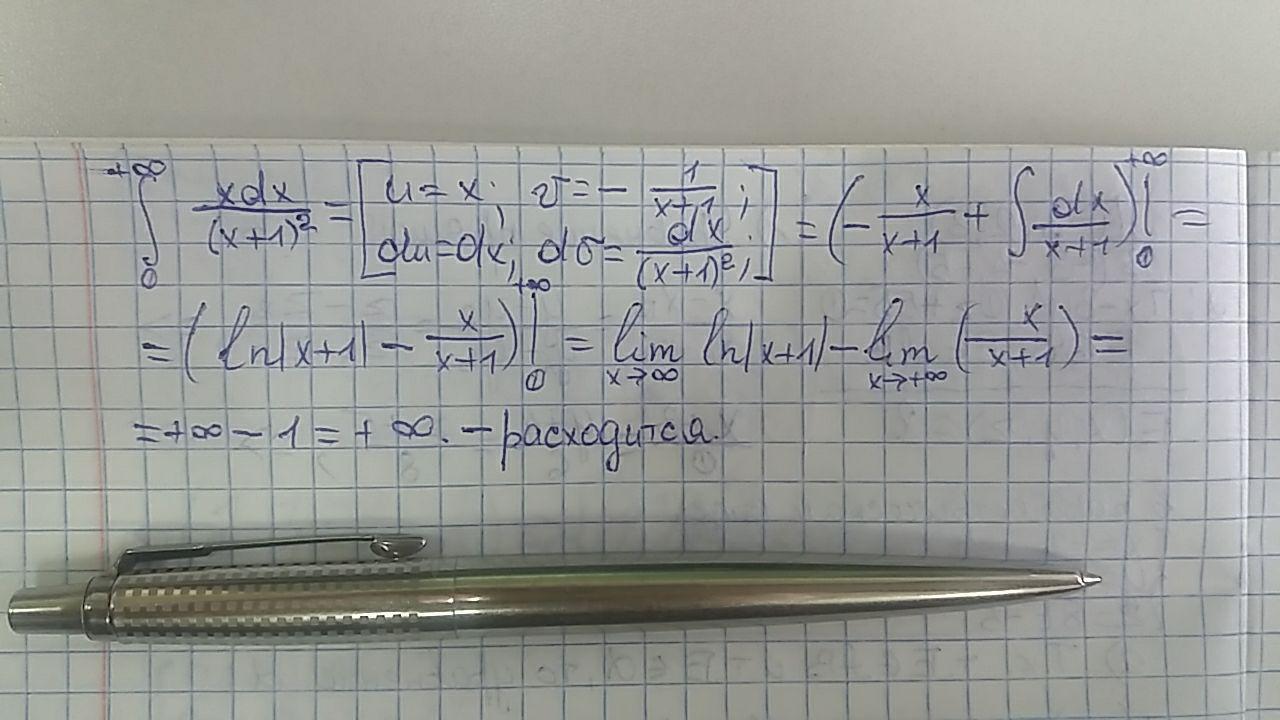 ∫₀^{+∞} xdx/(x+1)² = [u = x; v = − 1/(x+1); du = dx; dv = dx/(x+1)²;] = (− x/(x+1) + ∫ dx/(x+1)) |₀^{+∞} =
= (ln|x+1| − x/(x+1)) |₀^{+∞} = lim_{x→∞} ln|x+1| − lim_{x→+∞} (x/(x+1)) =
= +∞ − 1 = + ∞. – расходится.